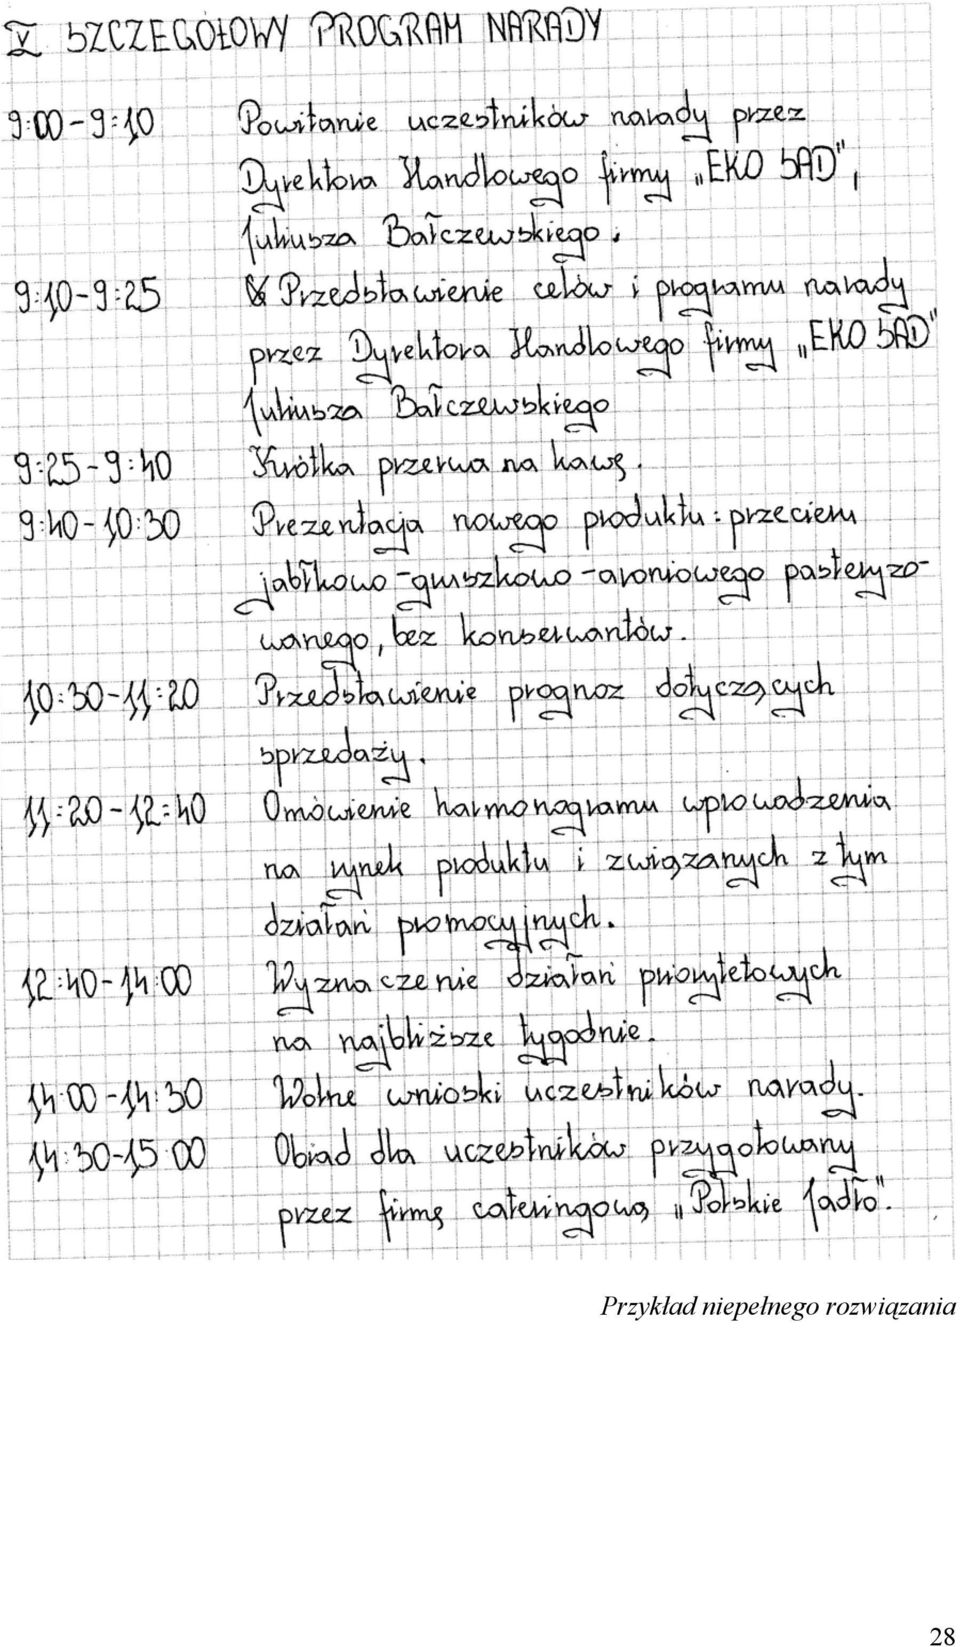 V SZCZEGÓŁOWY PROGRAM NARADY
9:00-9:10 Powitanie uczestników narady przez
Dyrektora Handlowego firmy „EKO SAD",
Juliusza Barczewskiego.
9:10-9:25 Przedstawienie celów i programu narady
przez Dyrektora Handlowego firmy „EKO SAD"
Juliusza Barczewskiego
9:25-9:40 Krótka przerwa na kawę.
9:40-10:30 Prezentacja nowego produktu: przecieru
jabłkowo-gruszkowo-aroniowego pasteryzo-
wanego, bez konserwantów.
10:30-11:20 Przedstawienie prognoz dotyczących
sprzedaży.
11:20-12:40 Omówienie harmonogramu wprowadzenia
na rynek produktu i związanych z tym
działań promocyjnych.
12:40-14:00 Wyznaczenie działań priorytetowych
na najbliższe tygodnie.
14:00-14:30 Wolne wnioski uczestników narady.
14:30-15:00 Obiad dla uczestników przygotowany
przez firmę cateringową „Polskie Jadło".
Przykład niepełnego rozwiązania
28